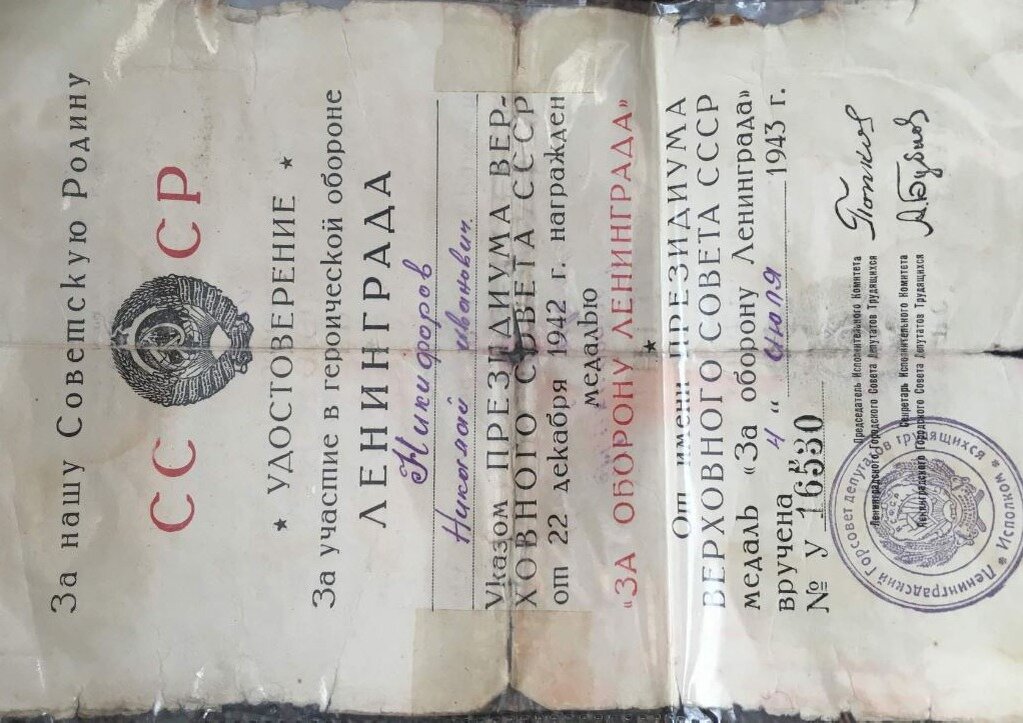 За нашу Советскую Родину
СС СР
★ УДОСТОВЕРЕНИЕ ★
За участие в героической обороне
ЛЕНИНГРАДА
Никифоров
Николай иванович
Указом ПРЕЗИДИУМА ВЕР-
ХОВНОГО СОВЕТА СССР
от 22 декабря 1942 г. награжден
медалью
„ЗА ОБОРОНУ ЛЕНИНГРАДА”
★
От имени ПРЕЗИДИУМА
ВЕРХОВНОГО СОВЕТА СССР
медаль „За оборону Ленинграда”
вручена „ 4 „ июля 1943 г.
№ У 16530
Председатель Исполнительного Комитета
Ленинградского Городского Совета Депутатов Трудящихся
Попков
Секретарь Исполнительного Комитета
Ленинградского Городского Совета Депутатов Трудящихся
А. Бубнов
Ленинградский Горсовет депутатов трудящихся ★ Исполком ★